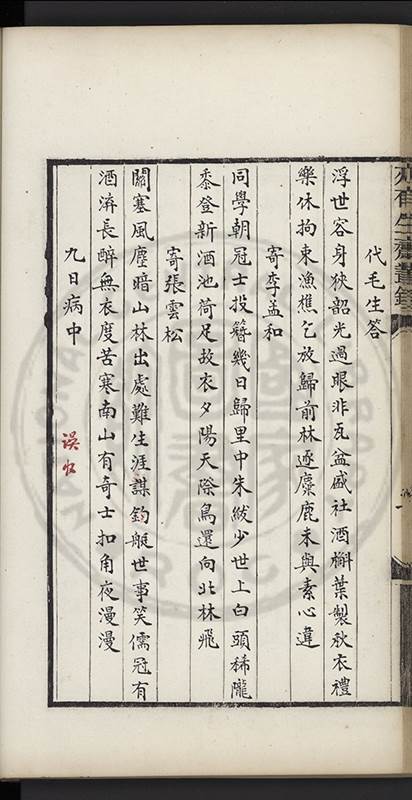 代毛生答
浮世容身狹韶光過眼非瓦盆盛社酒槲葉製秋衣禮
樂休拘束漁樵乞放歸前林逐麋鹿未與素心違
寄李孟和
同學朝冠士投簪幾日歸里中朱紱少世上白頭稀隴
黍登新酒池荷足故衣夕陽天際鳥還向北林飛
寄張雲松
關塞風塵暗山林出處難生涯謀釣艇世事笑儒冠有
酒済長醉無衣度苦寒南山有奇士扣角夜漫漫
九日病中